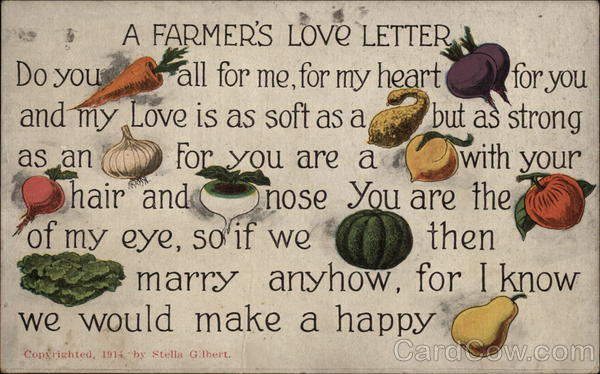 A FARMER'S LOVE LETTER
Do you all for me, for my heart for you
and my Love is as soft as a but as strong
as an For you are a with your
hair and nose You are the
of my eye, so if we then
marry anyhow, for I know
we would make a happy
Copyrighted, 1914, by Stella Gilbert.
CardCow.com